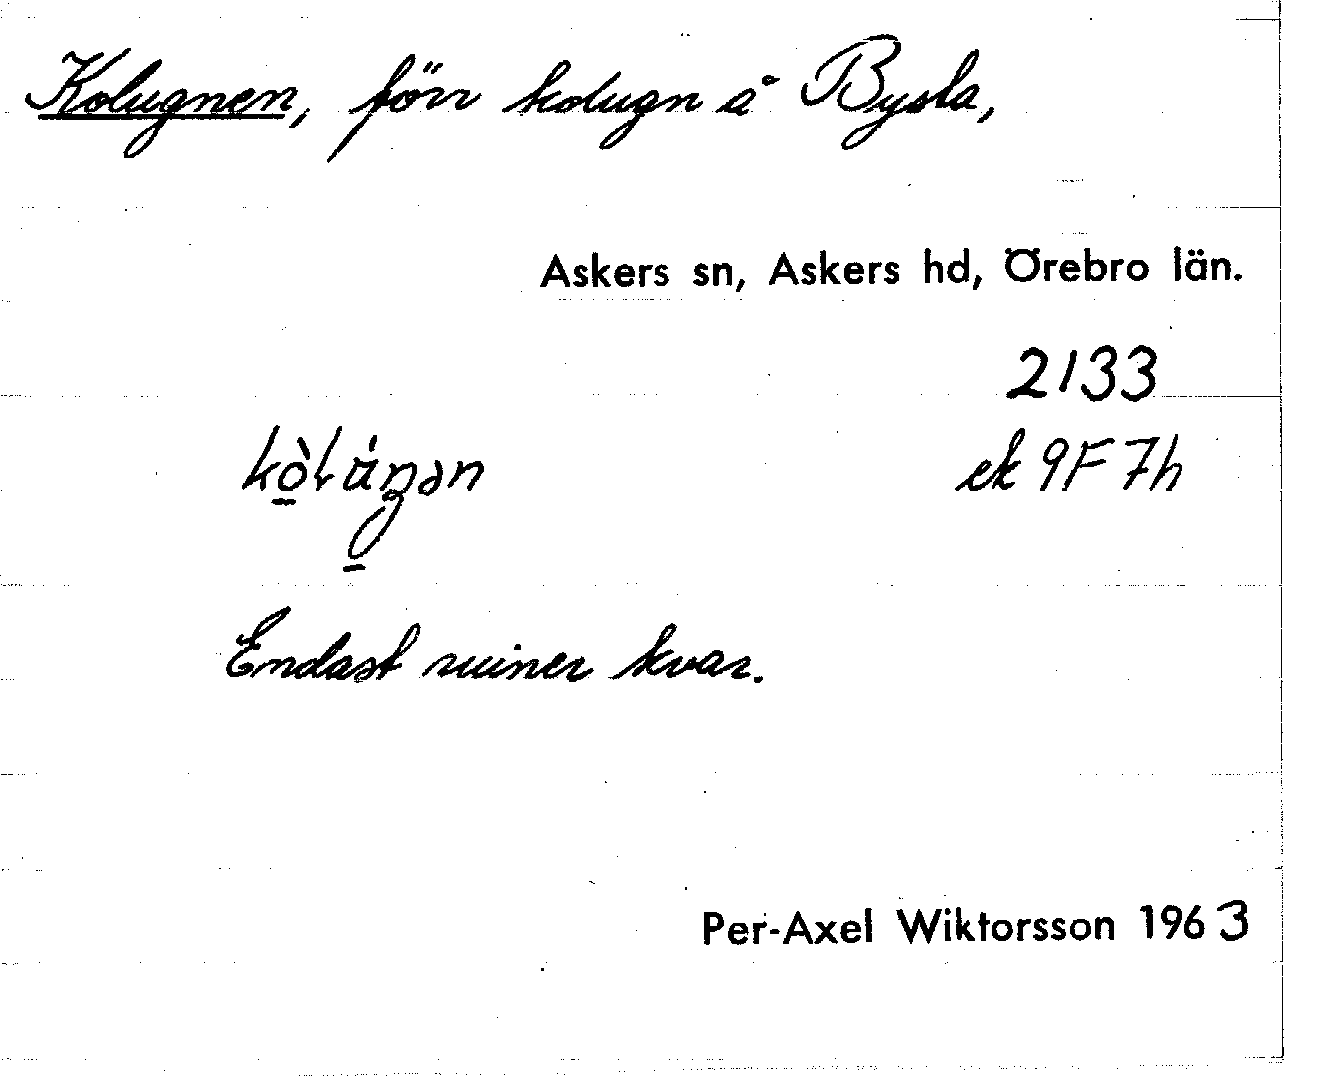 Kolugnen, förr kolugn å Bysta,
Askers sn, Askers hd, Örebro län.
2133
ek 9F 7h
Endast ruiner kvar.
Per-Axel Wiktorsson 1963